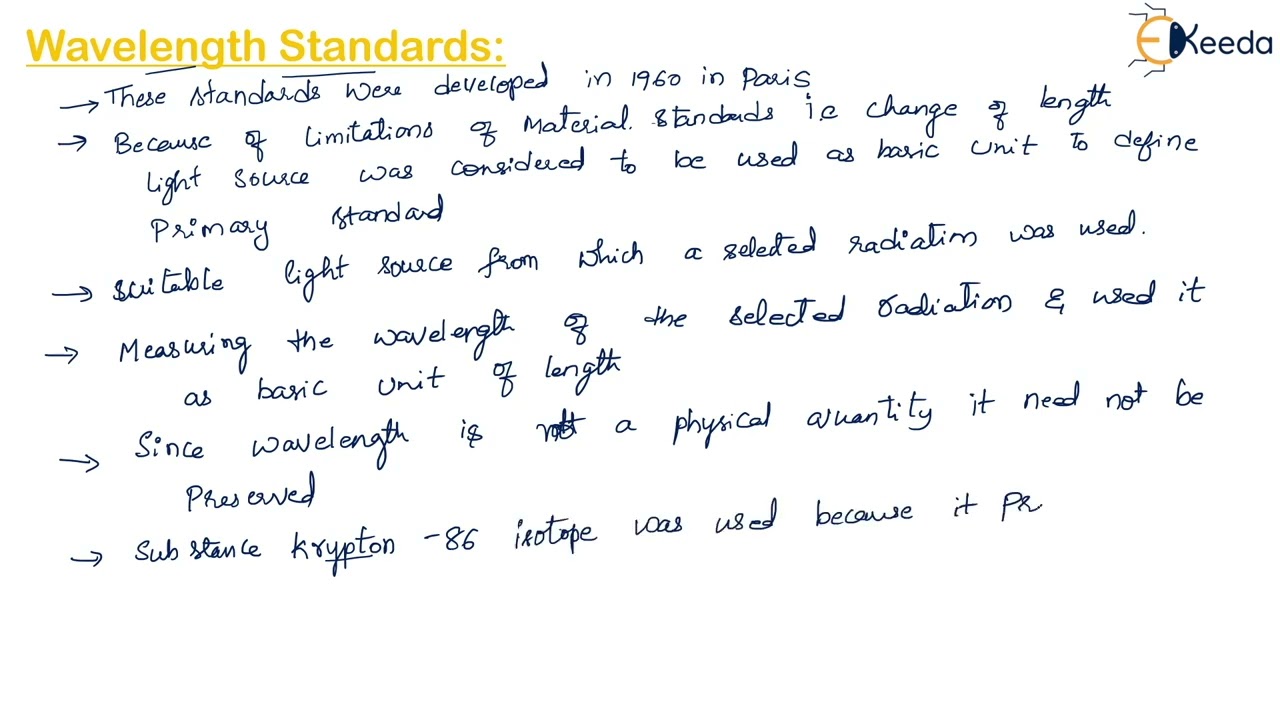 Wavelength Standards:
EKeeda
→ These standards were developed in 1960 in Paris
→ Because of limitations of Material. standards i.e change of length
light source was considered to be used as basic unit to define
Primary standard
→ suitable light source from which a selected radiation was used.
→ Measuring the wavelength of the selected radiation & used it
as basic unit of length
→ Since wavelength is not a physical quantity it need not be
Preserved
→ Substance krypton -86 isotope was used because it pr